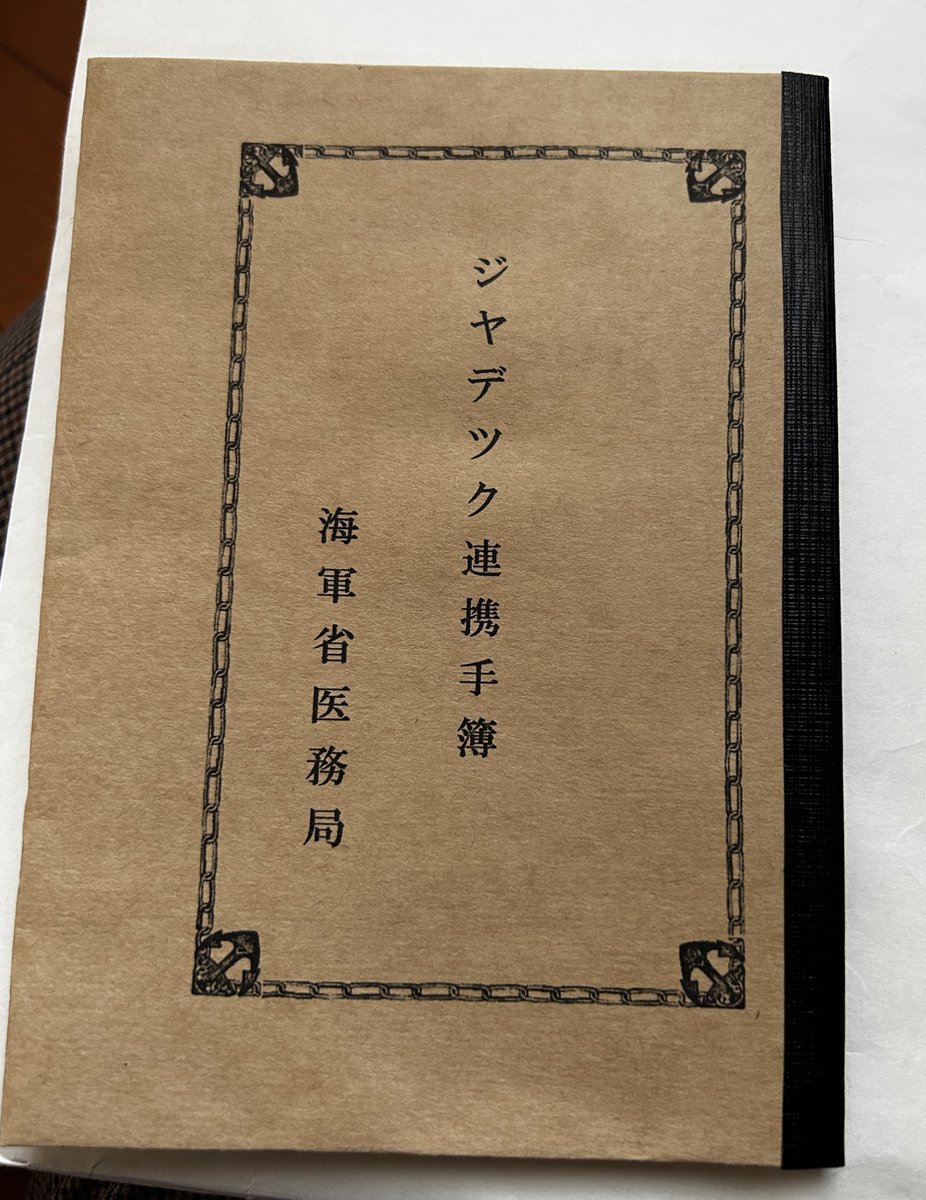 ジヤデツク連携手簿
海軍省医務局